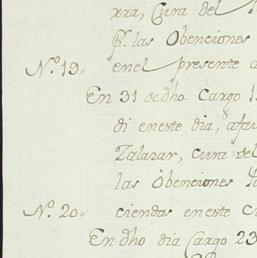 xxa, Cura del
Pr. las Obenciones
N.º 19. enel presente a
En 31 de dho Cargo 1
di en este dia, afav
Zalazar, cura del
las Obenciones
N.º 20. ciendas en este C
En dho dia Cargo 23